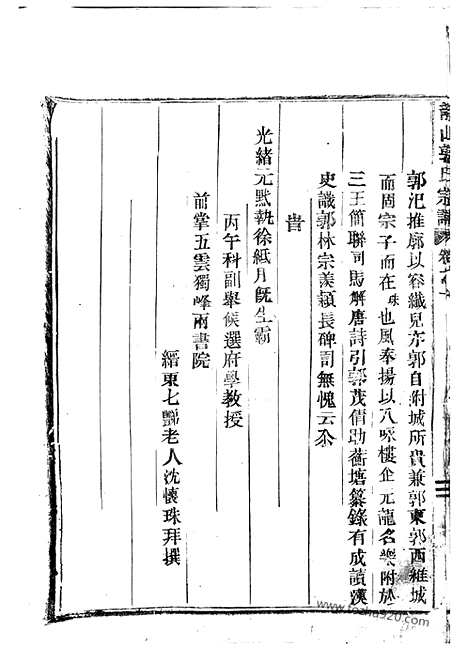 郭氾推廓以容纖兒东郭自附城所貴兼郭東郭西維城
而固宗子而在咮也風奉揚以八咏樓企元龍名樂附於
三王簡聯司馬解唐詩引郭茂倩助蓄塘纂錄有成讀漢
史識郭林宗羨潁長碑可無愧云尒
旹
光緒元默執徐紙月既生霸
丙午科副舉候選府學教授
前掌五雲獨峰兩書院
縉東七豔老人沈懷珠拜撰
郭氏宗譜